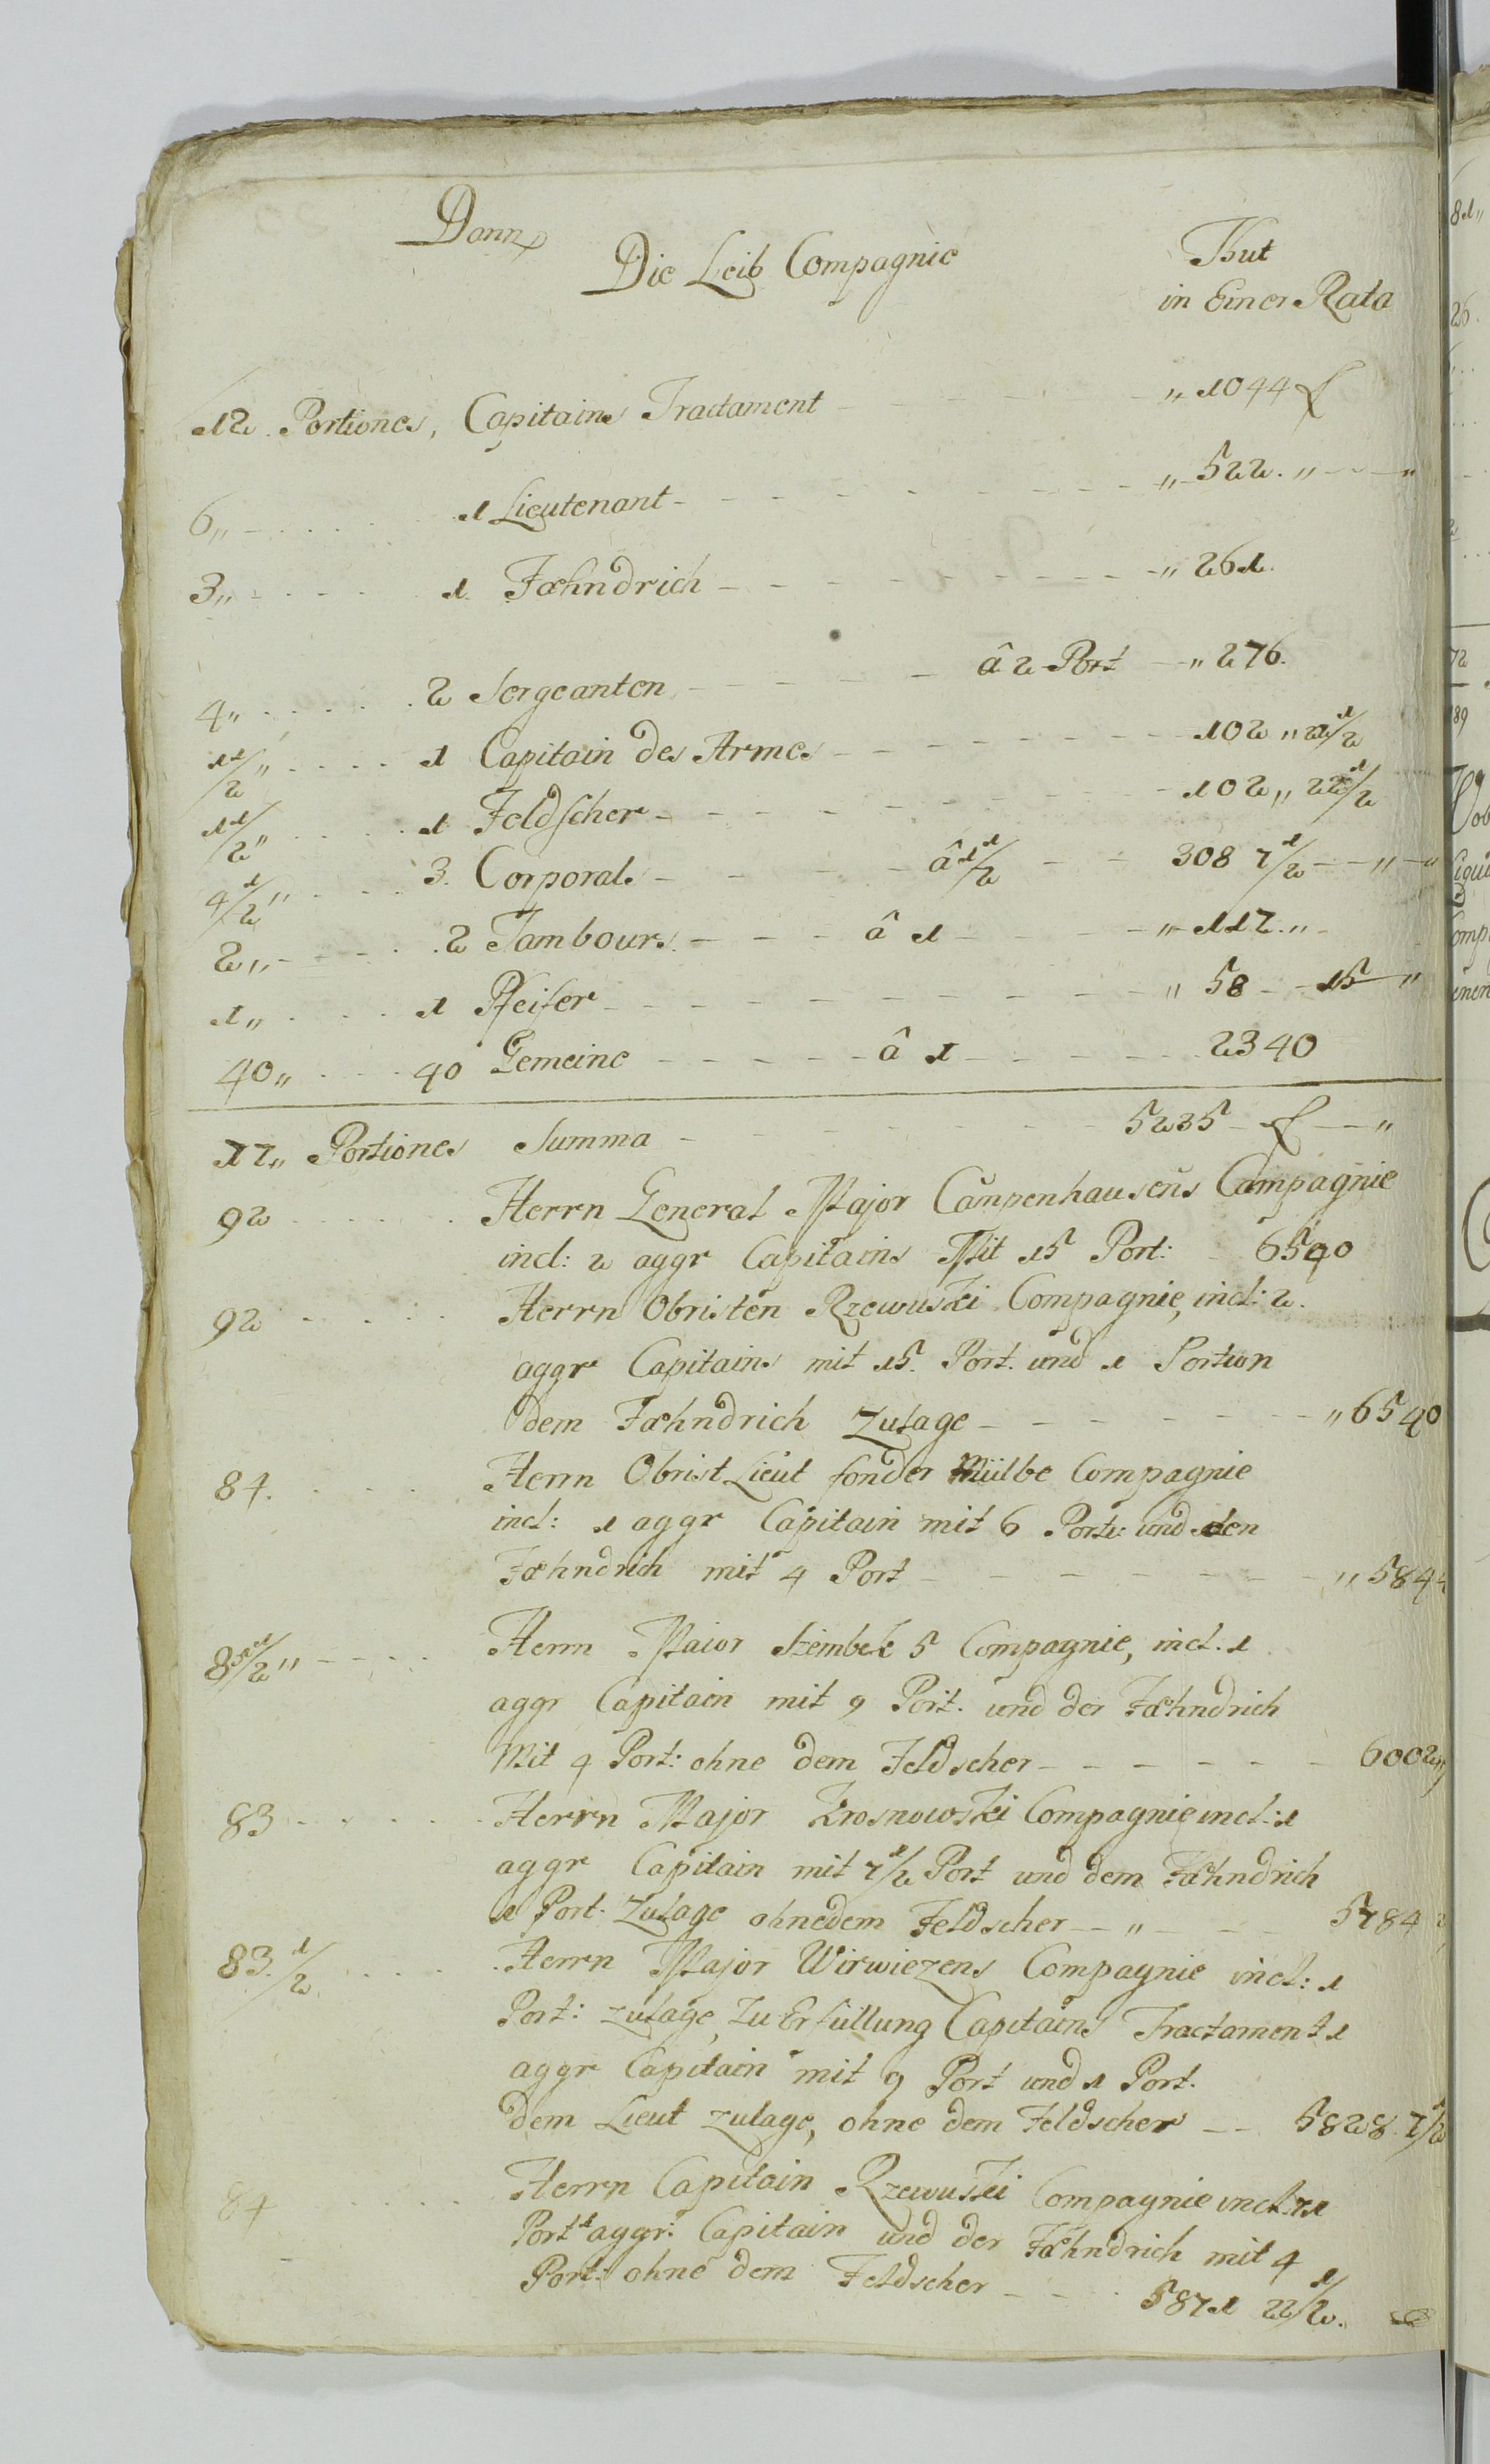 Dann
Die Leib Compagnie
Thut
in Einer Rata
12. Portiones, Capitains Tractament - - - - „ 1044 f
6„ - . . . . 1 Lieutenant - - - - - „ 522. „ - - „
3„ - . . . . 1. Fæhndrich - - - - - „ 261.
4„ . . . . . 2 Sergeanten, - - - - - â 2 Port - „ 276.
1 1/2 „ . . . . 1 Capitain des Armes - - - - - 102 „ 22 1/2
1 1/2 „ . . . . 1 Feldscher - - - - - 102 „ 22 1/2
4 1/2 „ . . . . 3. Corporals - - - - - â 1 1/2 - - 308 7 1/2 - - „ - „
2„ - - . . . 2 Tambours. - - - â 1 - - - - „ 117. „ -
1„ . . . . 1 Pfeifer - - - - - „ 58 - - 15 „
40„ . . . . 40 Gemeine - - - - - â 1 - - - - 2340
77„ Portiones Summa - - - - - 5235 - f - „
92 . . . . . . Herrn General Major Campenhausens Compagnie
incl: 2 aggr Capitains Mit 15 Port: - 6540
92 - . . . : Herrn Obristen Rzewuski Compagnie, incl: 2.
aggr Capitains mit 15. Port. und 1 Portion
dem Fæhndrich Zulage - - - - - „ 6540
84. . . . . Herrn Obrist Lieut fonder Mülbe Compagnie
incl: 1 aggr Capitain mit 6 Port: und den
Fæhndrich mit 4 Port - - - - - „ 5844
85 1/2 „ - - - . Herrn Maior Szembek 5 Compagnie, incl. 1
aggr Capitain mit 9 Port. und der Fæhndrich
Mit 4 Port: ohne dem Feldscher - - - - - 6002„
83 - . . . . . Herrn Major Krosnowski Compagnie incl: 1
aggr Capitain mit 7 1/2 Port und dem Fæhndrich
1 Port. Zulage ohnedem Feldscher - - „ - - - 5784
83. 1/2 . . . . Herrn Major Wirwiezens Compagnie incl: 1
Port: zulage, Zu Erfüllung Capitains Tractament 1
aggr Capitain mit 9 Port und 1 Port.
dem Lieut zulage, ohne dem Feldscher - - 5828. 7 1/2
84 . . . . . Herrn Capitain Rzewuski Compagnie incl:
Port 1 aggr: Capitain und der Fæhndrich mit 4
Port: ohne dem Feldscher - - - 5871 22 1/2.